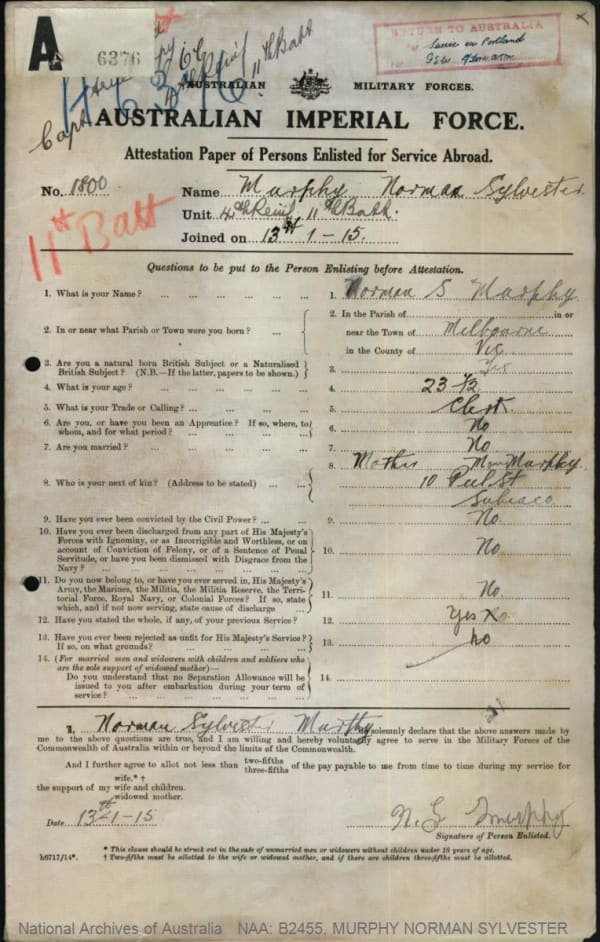 A
6376
RETURN TO AUSTRALIA
11th Batt
AUSTRALIAN MILITARY FORCES.
Capt
AUSTRALIAN IMPERIAL FORCE.
Attestation Paper of Persons Enlisted for Service Abroad.
No. 1800 Name Murphy Norman Sylvester
Unit 4th Reinf 11th Batt.
Joined on 13th-1-15
11th Batt
Questions to be put to the Person Enlisting before Attestation.
1. What is your Name? 1. Norman S Murphy
2. In or near what Parish or Town were you born? 2. In the Parish of in or
near the Town of Melbourne
in the County of Vic
3. Are you a natural born British Subject or a Naturalised
British Subject? (N.B.—If the latter, papers to be shown.) 3. Yes
4. What is your age? 4. 23 5/12
5. What is your Trade or Calling? 5. Clerk
6. Are you, or have you been an Apprentice? If so, where, to
whom, and for what period? 6. No
7. Are you married? 7. No
8. Who is your next of kin? (Address to be stated) 8. Mother Murphy
10 St
Subiaco
9. Have you ever been convicted by the Civil Power? 9. No
10. Have you ever been discharged from any part of His Majesty's
Forces with Ignominy, or as Incorrigible and Worthless, or on
account of Conviction of Felony, or of a Sentence of Penal
Servitude, or have you been dismissed with Disgrace from the
Navy? 10. No
11. Do you now belong to, or have you ever served in, His Majesty's
Army, the Marines, the Militia, the Militia Reserve, the Terri-
torial Force, Royal Navy, or Colonial Forces? If so, state
which, and if not now serving, state cause of discharge 11. No
12. Have you stated the whole, if any, of your previous Service? 12. Yes
13. Have you ever been rejected as unfit for His Majesty's Service?
If so, on what grounds? 13. No
14. (For married men and widowers with children and soldiers who
are the sole support of widowed mother)—
Do you understand that no Separation Allowance will be
issued to you after embarkation during your term of
service? 14.
I, Norman Sylvester Murphy do solemnly declare that the above answers made by
me to the above questions are true, and I am willing and hereby voluntarily agree to serve in the Military Forces of the
Commonwealth of Australia within or beyond the limits of the Commonwealth.
And I further agree to allot not less than two-fifths three-fifths of the pay payable to me from time to time during my service for
wife.* †
the support of my wife and children.
widowed mother.
Date 13th-1-15 N. S. Murphy
Signature of Person Enlisted.
* This clause should be struck out in the case of unmarried men or widowers without children under 18 years of age.
b6717/14*. † Two-fifths must be allotted to the wife or widowed mother, and if there are children three-fifths must be allotted.
National Archives of Australia NAA: B2455, MURPHY NORMAN SYLVESTER